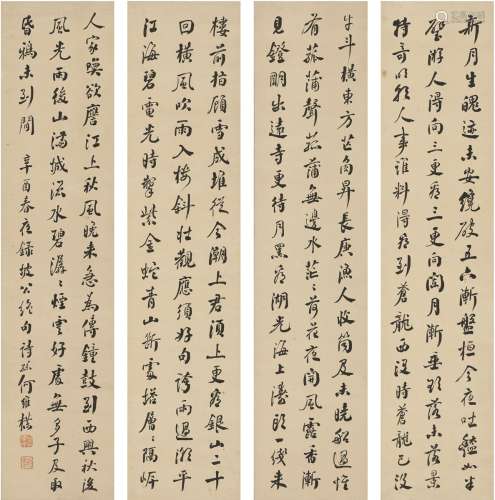 新月生魄迹未安纔破五六漸盤桓今夜吐豔如半
璧游人得向三更看三更向闌月漸垂欲落未落景
特奇明朝人事誰料得看到蒼龍西没時蒼龍已没
牛斗橫東方芒角昇長庚漁人收筒及未曉船過惟
有菰蒲聲菰蒲無邊水茫〻荷花夜開風露香漸
見鐙明出遠寺更待月黑看湖光海上濤頭一綫來
樓前指顧雪成堆從今潮上君須上更看銀山二十
回橫風吹雨入樓斜壯觀應須好句誇雨過潮平
江海碧電光時掣紫金蛇青山斷處塔層〻隔岸
人家喚欲譍江上秋風晚來急為傳鐘鼓到西興秋後
風光雨後山滿城流水碧潺〻煙雲好處無多子及取
昏鴉未到間 辛酉春夜録坡公絶句詩孫何維樸